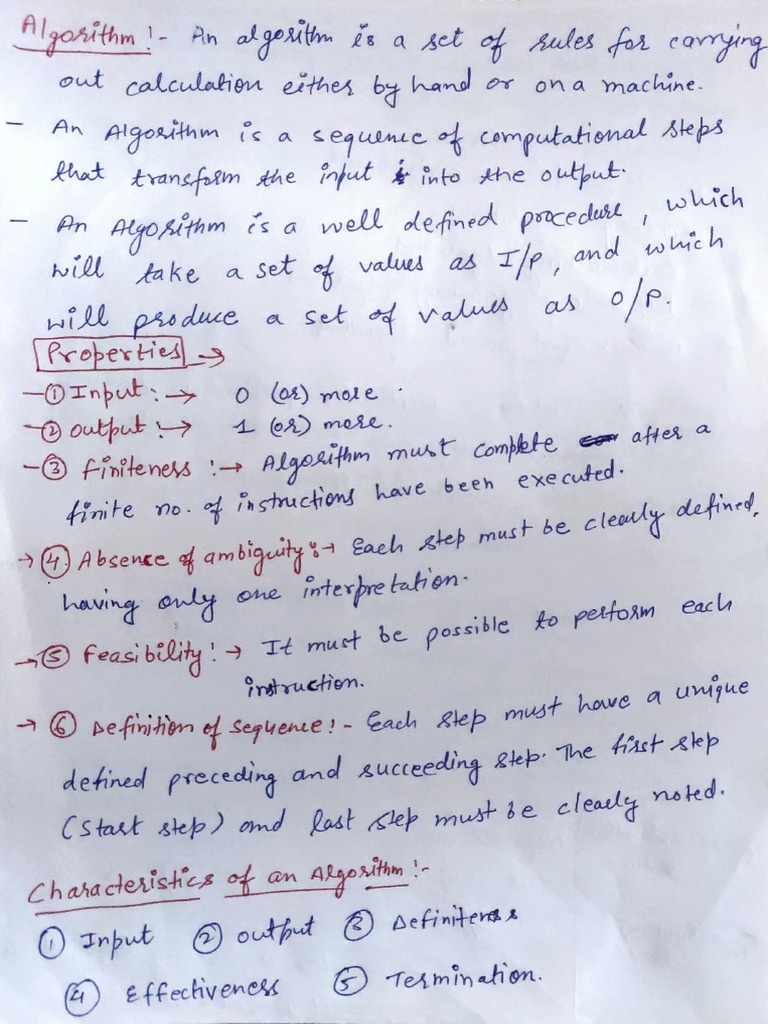 Algorithm :- An algorithm is a set of rules for carrying
out calculation either by hand or on a machine.
- An Algorithm is a sequence of computational steps
that transform the input into the output.
- An Algorithm is a well defined procedure, which
will take a set of values as I/P, and which
will produce a set of values as O/P.
Properties →
- ① Input :→ 0 (or) more.
- ② output :→ 1 (or) more.
- ③ finiteness :→ Algorithm must complete after a
finite no. of instructions have been executed.
→ ④ Absence of ambiguity :→ Each step must be clearly defined,
having only one interpretation.
→ ⑤ Feasibility :→ It must be possible to perform each
instruction.
→ ⑥ Definition of sequence :- Each step must have a unique
defined preceding and succeeding step. The first step
(start step) and last step must be clearly noted.
Characteristics of an Algorithm :-
① Input ② output ③ Definiteness
④ Effectiveness ⑤ Termination.